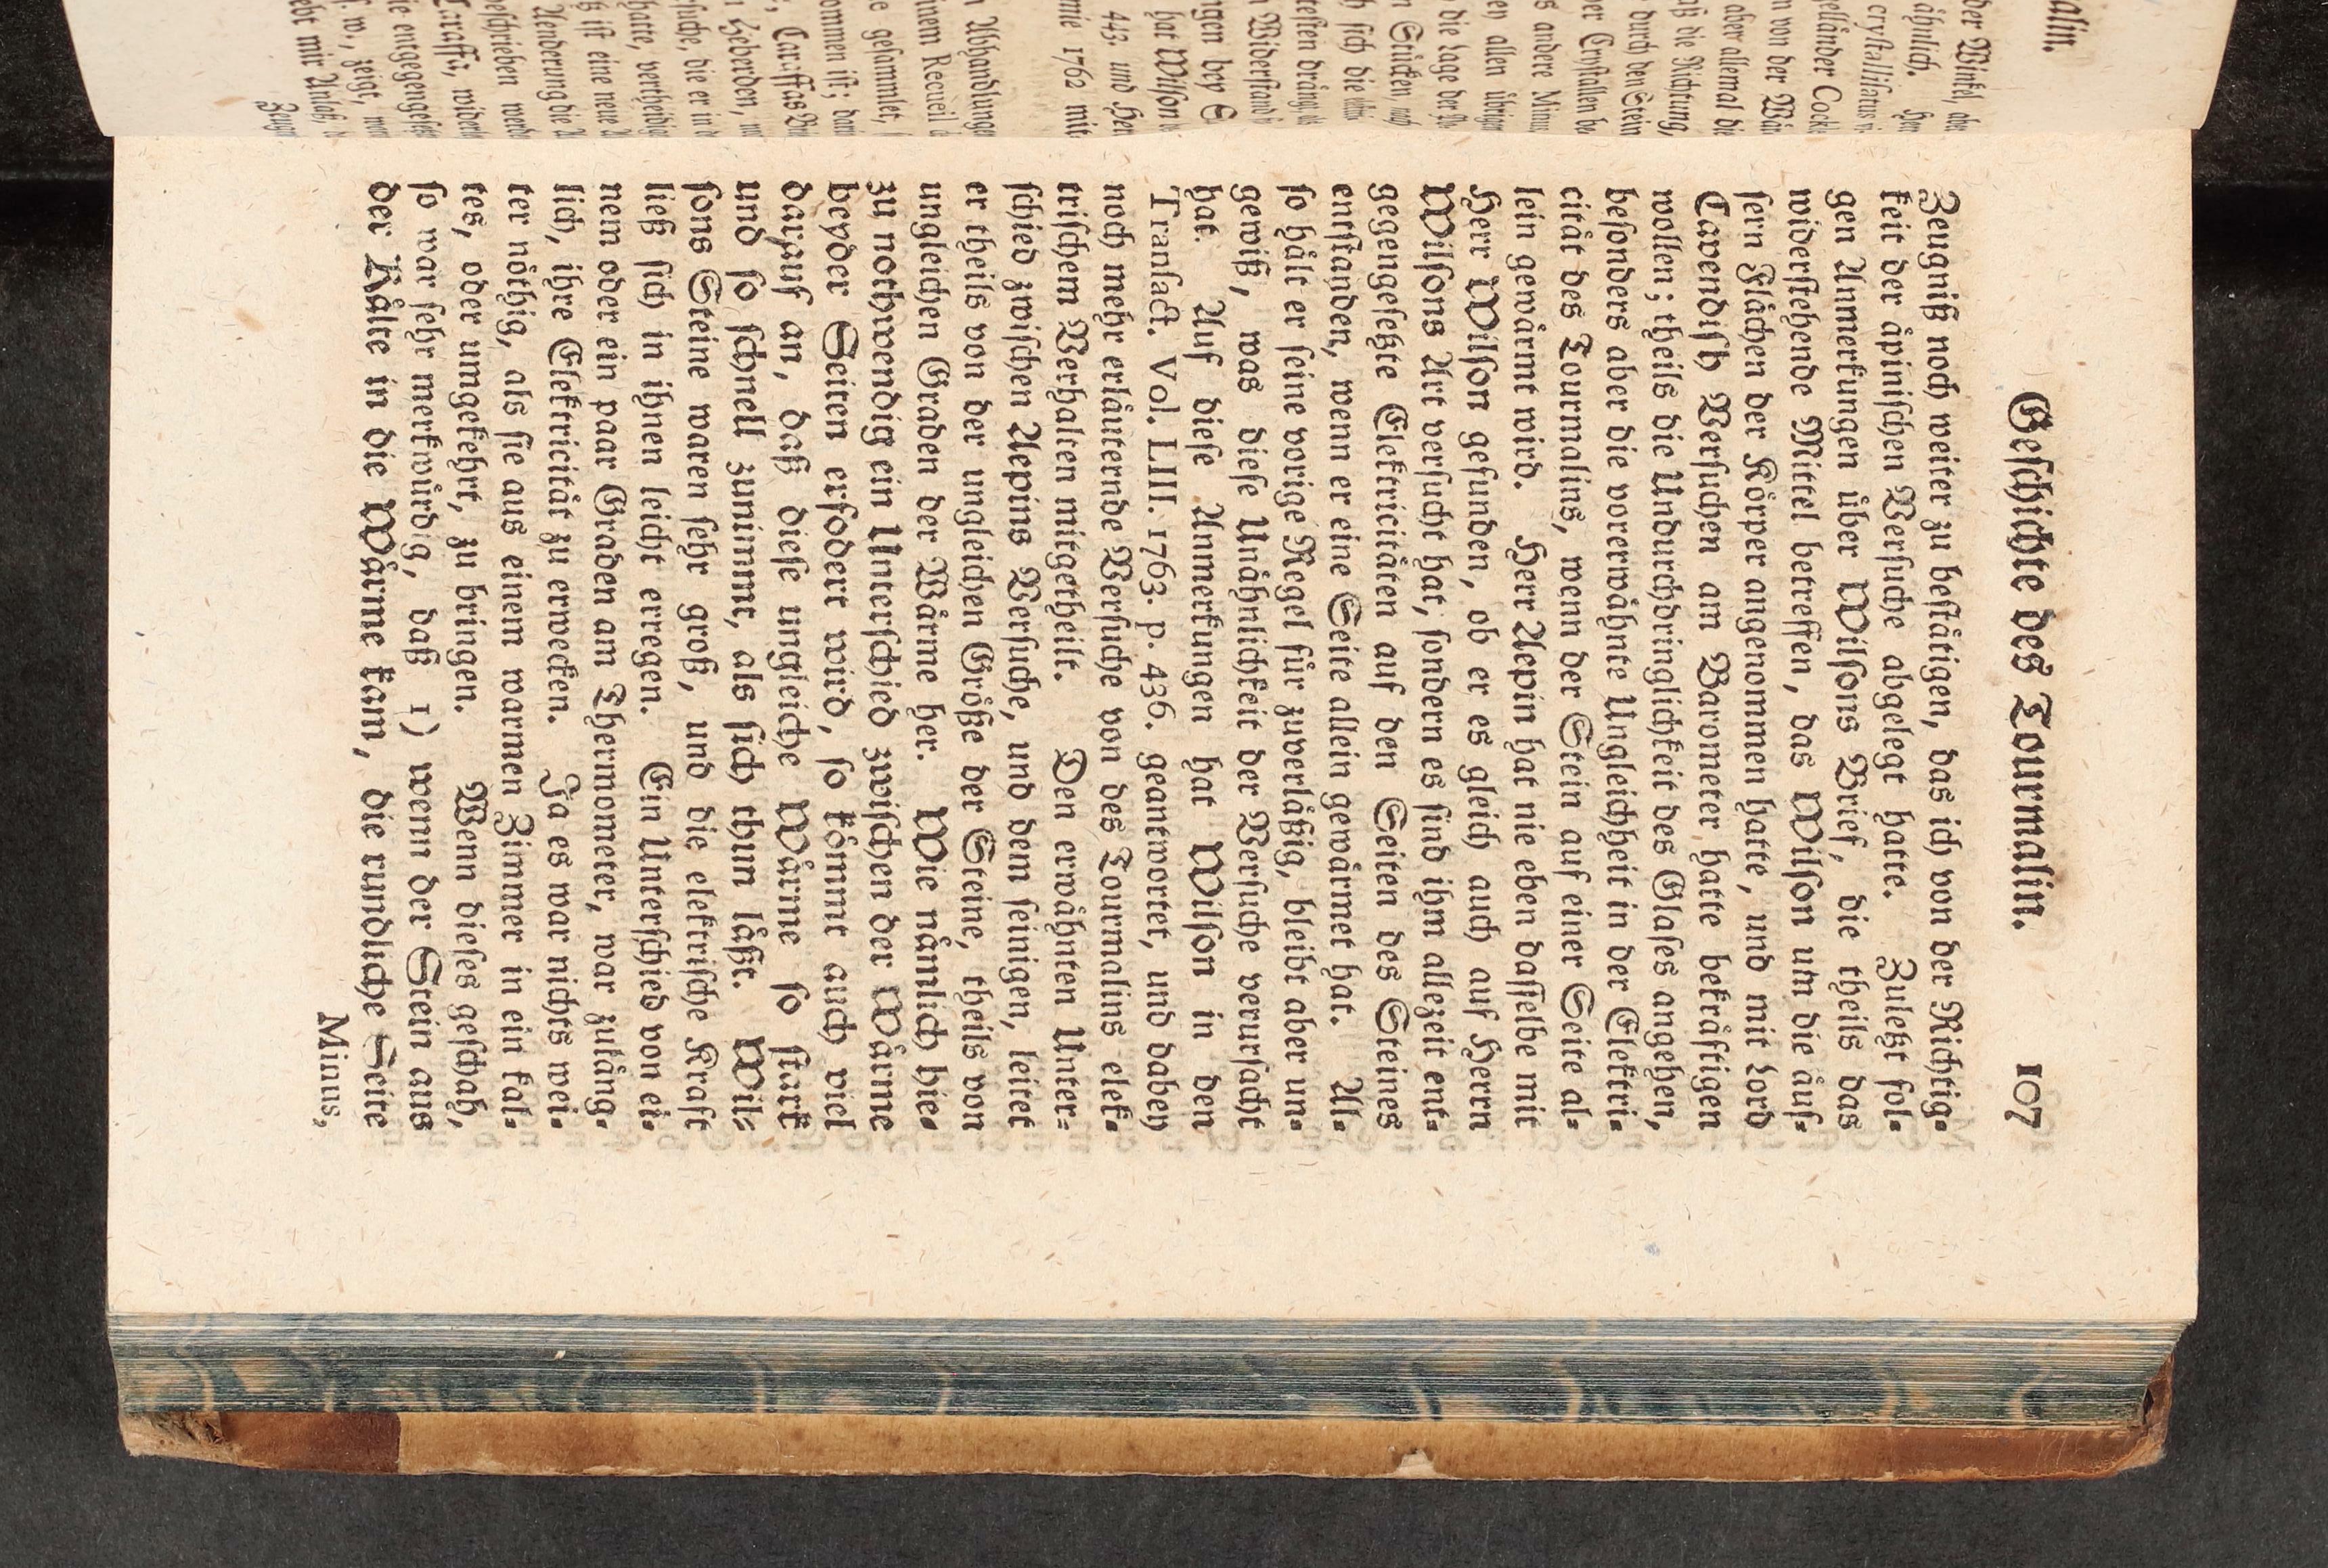 Geſchichte des Tourmalin. 107
Zeugniß noch weiter zu beſtätigen, das ich von der Richtig-
keit der äpiniſchen Verſuche abgelegt hatte. Zuletzt fol-
gen Anmerkungen über Wilſons Brief, die theils das
widerſtehende Mittel betreffen, das Wilſon um die äuſ-
ſern Flächen der Körper angenommen hatte, und mit Lord
Cavendiſh Verſuchen am Barometer hatte bekräftigen
wollen; theils die Undurchdringlichkeit des Glaſes angehen,
beſonders aber die vorerwähnte Ungleichheit in der Elektri-
cität des Tourmalins, wenn der Stein auf einer Seite al-
lein gewärmt wird. Herr Aepin hat nie eben daſſelbe mit
Herr Wilſon gefunden, ob er es gleich auch auf Herrn
Wilſons Art verſucht hat, ſondern es ſind ihm allezeit ent-
gegengeſetzte Elektricitäten auf den Seiten des Steines
entſtanden, wenn er eine Seite allein gewärmet hat. Al-
ſo hält er ſeine vorige Regel für zuverläßig, bleibt aber un-
gewiß, was dieſe Unähnlichkeit der Verſuche verurſacht
hat. Auf dieſe Anmerkungen hat Wilſon in den
Tranſact. Vol. LIII. 1763. p. 436. geantwortet, und dabey
noch mehr erläuternde Verſuche von des Tourmalins elek-
triſchem Verhalten mitgetheilt. Den erwähnten Unter-
ſchied zwiſchen Aepins Verſuche, und den ſeinigen, leitet
er theils von der ungleichen Größe der Steine, theils von
ungleichen Graden der Wärme her. Wie nämlich hie-
zu nothwendig ein Unterſchied zwiſchen der Wärme
beyder Seiten erfodert wird, ſo kömmt auch viel
darauf an, daß dieſe ungleiche Wärme ſo ſtark
und ſo ſchnell zunimmt, als ſich thun läßt. Wil-
ſons Steine waren ſehr groß, und die elektriſche Kraft
ließ ſich in ihnen leicht erregen. Ein Unterſchied von ei-
nem oder ein paar Graden am Thermometer, war zuläng-
lich, ihre Elektricität zu erwecken. Ja es war nichts wei-
ter nöthig, als ſie aus einem warmen Zimmer in ein kal-
tes, oder umgekehrt, zu bringen. Wenn dieſes geſchah,
ſo war ſehr merkwürdig, daß 1) wenn der Stein aus
der Kälte in die Wärme kam, die rundliche Seite
Minus,